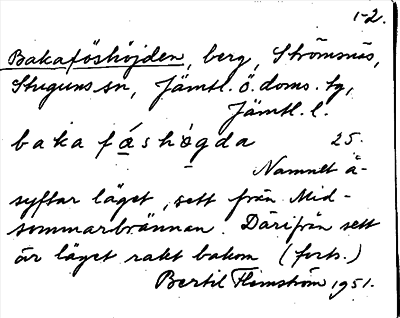 1-2.
Bakaföshöjden, berg, Strömsnäs,
Stuguns sn, Jämtl. ö. doms. tg,
Jämtl. l.
baka fǻshògda 25.
Namnet å-
syftar läget, sett från Mid-
sommarbrännan. Därifrån sett
är läget rakt bakom (forts.)
Bertil Flemström 1951.